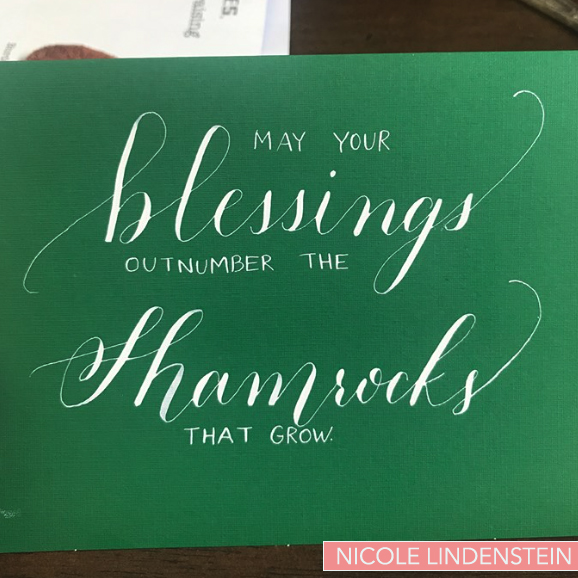 ES.
MAY YOUR
blessings
OUTNUMBER THE
Shamrocks
THAT GROW.
NICOLE LINDENSTEIN